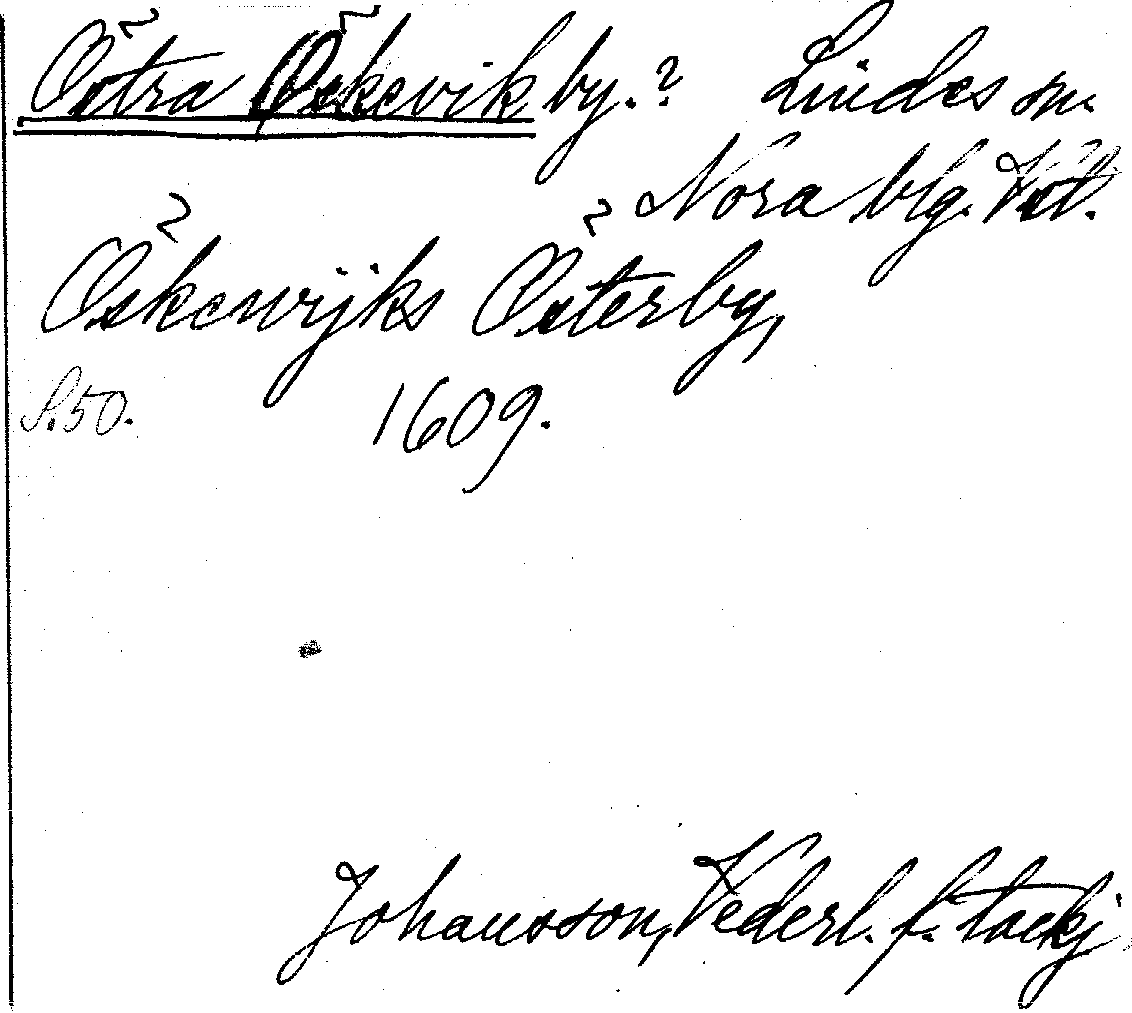 Östra Öskevik by.? Lindes sn.
Nora blg. Vstl.
Öskewijks Österby,
S.50. 1609.
Johansson, Vederl. f. tackj